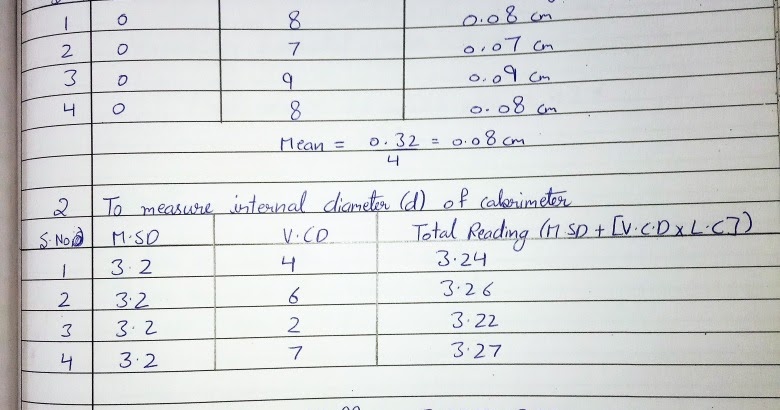 1 0 8 0.08 cm
2 0 7 0.07 cm
3 0 9 0.09 cm
4 0 8 0.08 cm
Mean = 0.32/4 = 0.08 cm
2 To measure internal diameter (d) of calorimeter
S.No M.SD V.CD Total Reading (M.SD + [V.C.D x L.C])
1 3.2 4 3.24
2 3.2 6 3.26
3 3.2 2 3.22
4 3.2 7 3.27